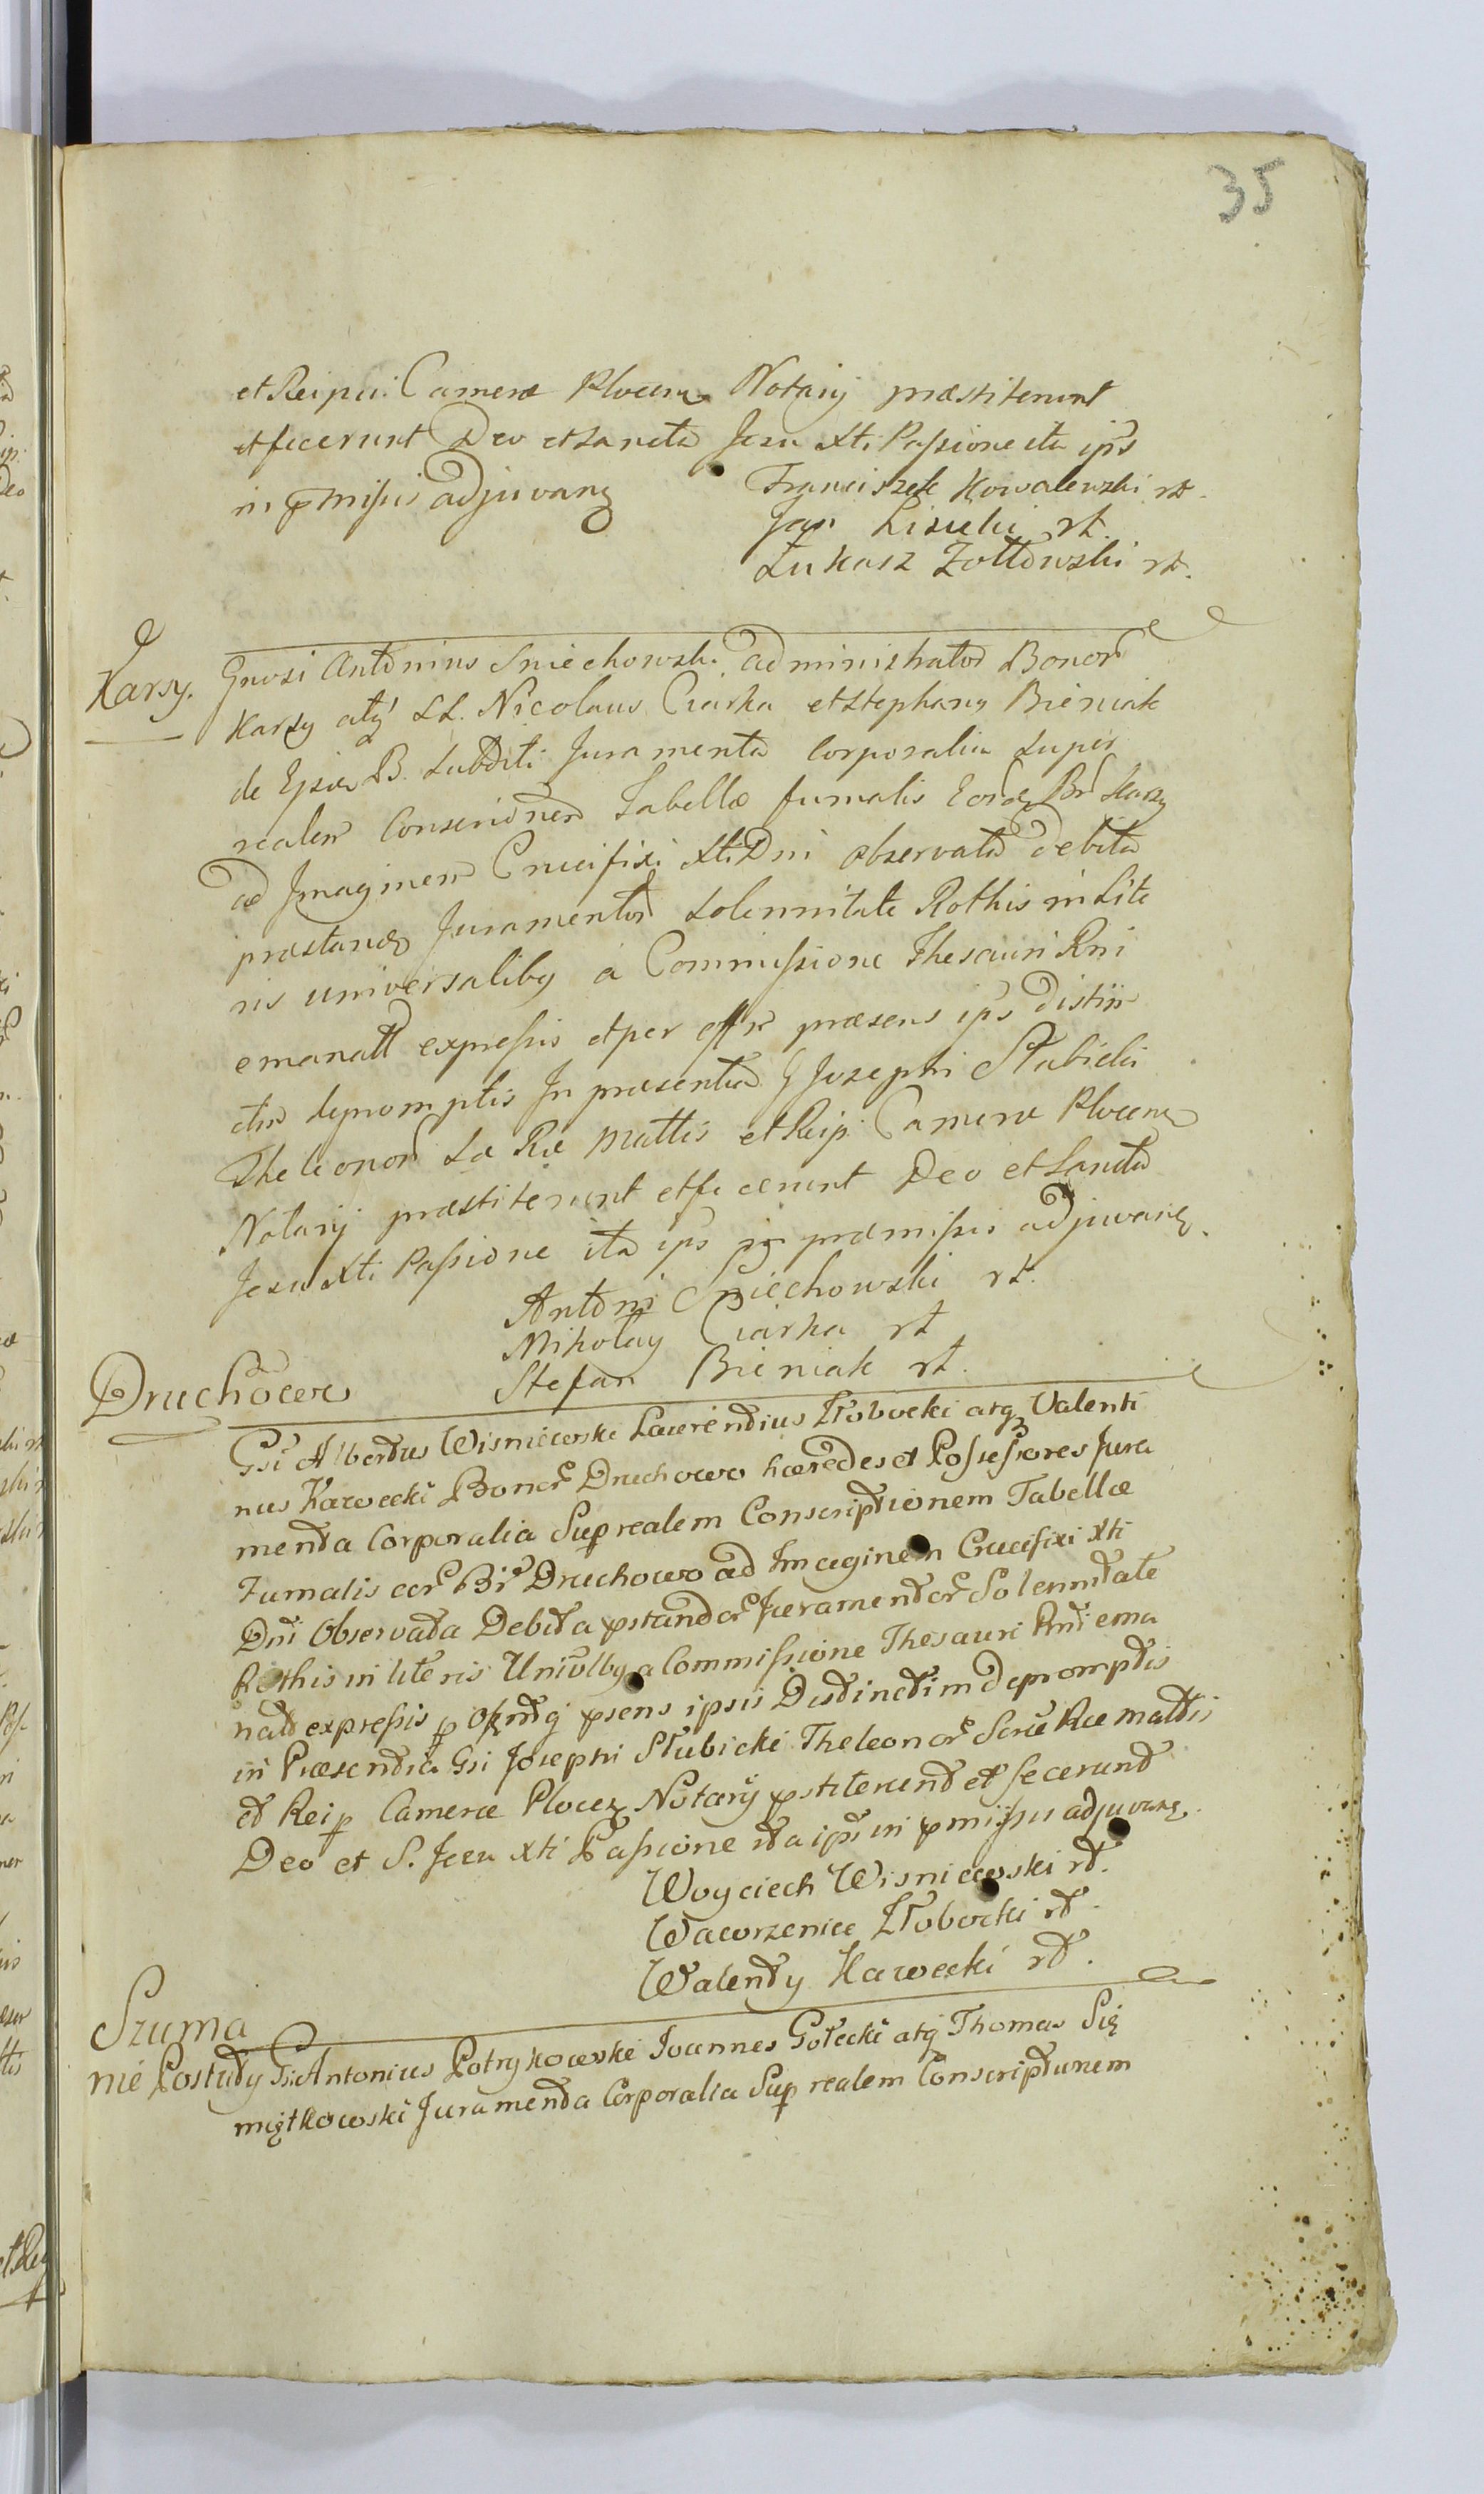 35
et Reipci: Camerae Plocens Notarij praestiterunt
et fecerunt Deo et Sancta Jesu Xti Passione ita ips
in pmissis adjuvang
Franciszek Kowalewski rt.
Jan Lisicki rt.
Łukasz Zołtowski rt.
Karsy.
Gnosi Antonius Sniechowski administrator Bonor
Karsy atq LL. Nicolaus Ciarka et Stephany Bieniak
de Eisd B. Subditi Juramenta Corporalia Super
realem Conscrionem Tabellae fumalis Eord Br Karsy
ad Imaginem Crucifixi Xti Dni observata debita
praestandor Juramentor Solennitate Rothis in Lite
ris universaliby a Commissione Thesauri Rni
emanatt expressis et per offm praesens ips distin
ctim depromptis In praesentia G Josephi Słubicki
Theleonor Sae Rae Mattis et Reip: Camerae Plocens
Notarij praestiterunt et fecerunt Deo et Sancta
Jesu Xti Passione ita ips in praemissis adjuvang.
Antoni Sniechowski rt.
Mikołay Ciarka rt
Stefan Bieniak rt.
Druchowo
Gsi Albertus Wisniewski Laurentius Złobocki atq Valenti
nus Kawecki Bonor Druchowo haeredes et Possessores Jura
menta Corporalia Sup realem Conscriptionem Tabellae
Fumalis eor Br Druchowo ad Imaginem Crucifixi Xti
Dni Observata Debita pstandor Juramentor Solennitate
Rothis in literis Univlby a Commissione Thesauri Rni ema
natt expressis p psens ipsis Distinctim depromptis
in Praesentia Gsi Josephi Słubicki Theleonor Scae Rae Mattis
et Reip Camerae Plocen Notarij pstiterunt et fecerunt
Deo et S. Jesu Xti Passione ita ips in pmissis adjuvang.
Woyciech Wisniewski rt.
Wawrzeniec Złobocki rt.
Walenty Kawecki rt.
Szuma
nie Postudy Gsi Antonius Potrykowski Joannes Gołecki atq Thomas Się
miątkowski Juramenta Corporalia Sup realem Conscriptionem